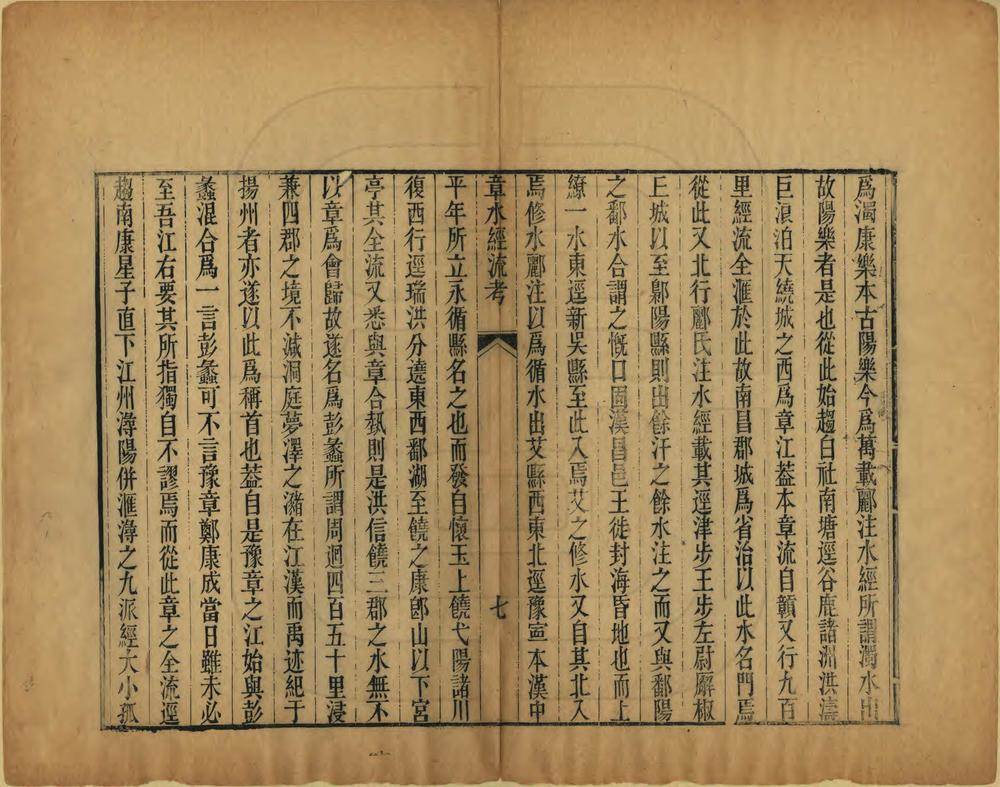 為濁康樂本古陽樂今為萬載酈注水經所謂濁水出
故陽樂者是也從此始趨白社南塘逕谷鹿諸洲洪濤
巨浪泊天繞城之西為章江葢本章流自贛又行九百
里經流全滙於此故南昌郡城為省治以此水名門焉
從此又北行酈氏注水經載其逕津步王步左尉廨椒
丘城以至鄡陽縣則出餘汗之餘水注之而又與鄱陽
之鄱水合謂之慨口固漢昌邑王徙封海昏地也而上
繚一水東逕新吳縣至此入焉艾之修水又自其北入
焉修水酈注以為循水出艾縣西東北逕豫寍本漢中
章水經流考 七
平年所立永循縣名之也而發自懷玉上饒弋陽諸川
復西行逕瑞洪分遶東西鄱湖至饒之康郎山以下宮
亭其全流又悉與章合埶則是洪信饒三郡之水無不
以章為會歸故遂名為彭蠡所謂周迴四百五十里浸
兼四郡之境不減洞庭夢澤之瀦在江漢而禹迹紀于
揚州者亦遂以此為稱首也葢自是豫章之江始與彭
蠡混合為一言彭蠡可不言豫章鄭康成當日雖未必
至吾江右要其所指獨自不謬焉而從此章之全流逕
趨南康星子直下江州潯陽併滙潯之九派經大小孤